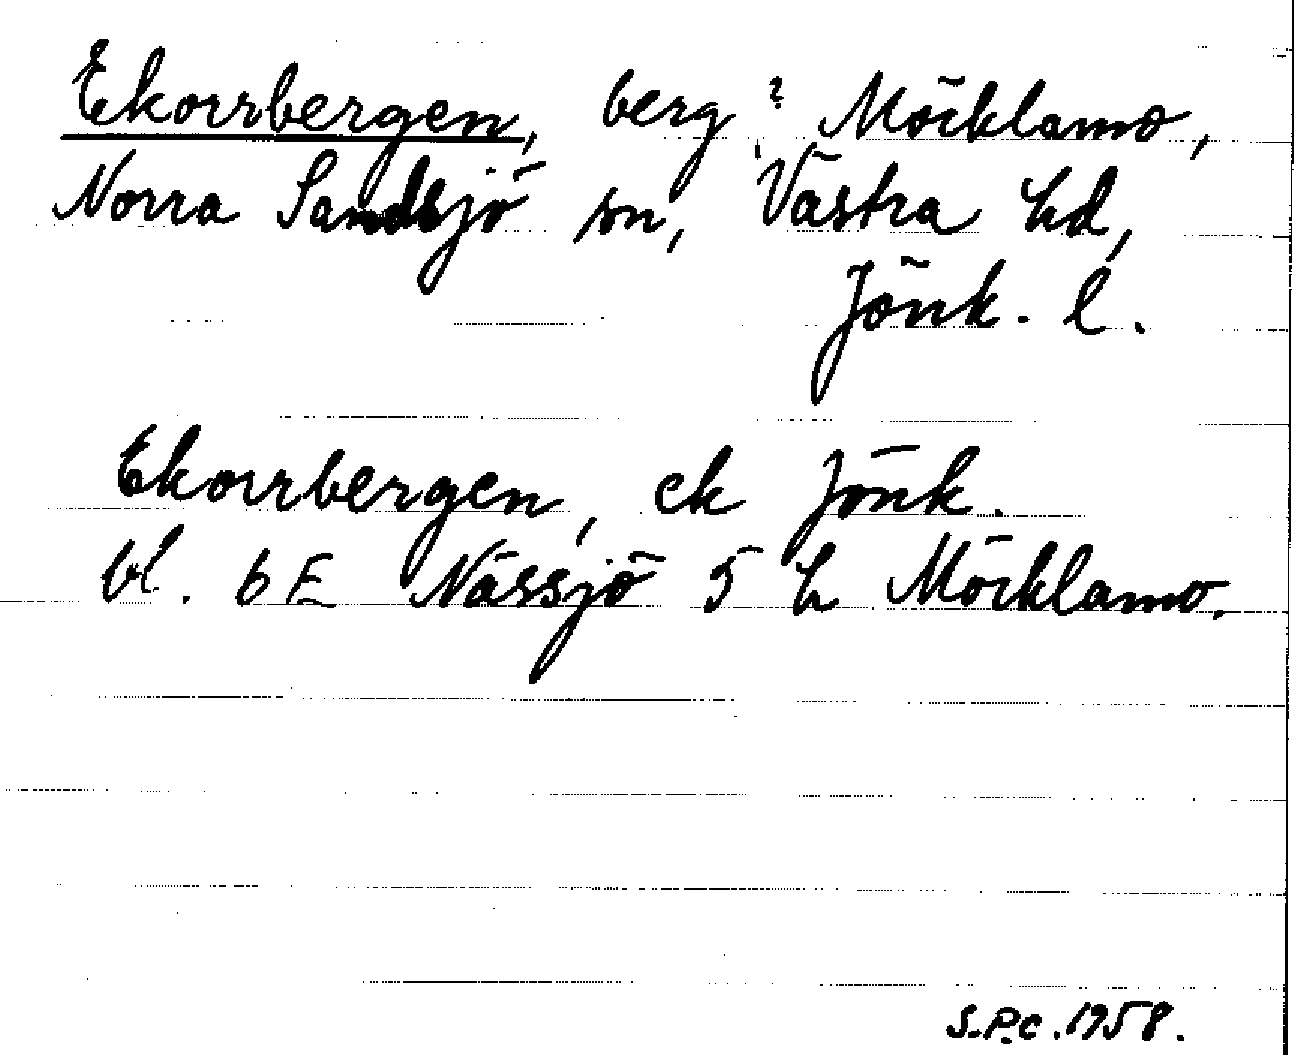 Ekorrbergen, berg? Möcklamo,
Norra Sandsjö sn, Västra hd,
Jönk. l.
Ekorrbergen, ek Jönk.
bl. 6 E Nässjö 5 h Möcklamo.
S.P.C. 1958.